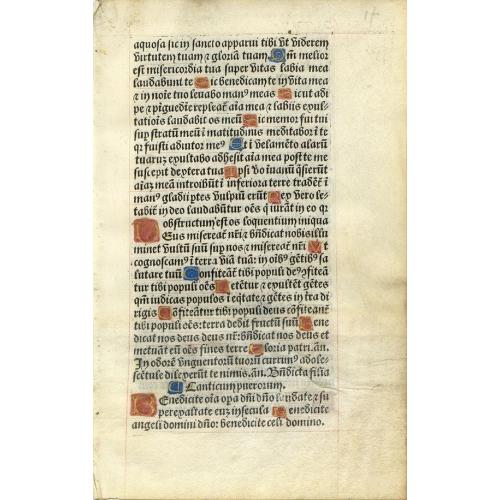 aquosa sic in sancto apparui tibi vt viderem
virtutem tuam ⁊ gloriā tuam Qm̄ melior
est misericordia tua super vitas labia mea
laudabunt te Sic benedicam te in vita mea
⁊ in noīe tuo leuabo manꝰ meas Sicut adi
pe ⁊ pīguedīe repleat̄ aīa mea ⁊ labiis exul-
tatiōis laudabit os meū Sic memor fui tui
sup stratū meū ī matitudinis meditabor ī te
qr fuisti adiutor meꝰ Et ī velamēto alarū
tuaruꝫ exultabo adhesit aīa mea post te me
suscepit dextera tua Ipsi vo ī vanū q̄sierūt
aīaꝫ meā introibūt ī inferiora terre tradēt̄ ī
manꝰ gladii ptes vulpiū erūt Rex vero le-
tabit̄ in deo laudabūtur oēs q iurāt in eo qr
obstructum est os loquentium iniqua
Deus misereat̄ nr̄i ⁊ bn̄dicat nobis illu
minet vultū suū sup nos ⁊ misereat̄ nr̄i Vt
cognoscamꝰ ī terra viā tuā: in oībꝰ gētibꝰ sa
lutare tuū Confiteāt̄ tibi populi deꝰ ꝯfiteā
tur tibi populi oēs Letētur ⁊ exultēt gētes
qm̄ iudicas populos ī eq̄tate ⁊ gētes in tr̄a di
rigis Cōfiteātur tibi populi deus cōfiteant̄
tibi populi oēs: terra dedit fructū suū Bene
dicat nos deus deus nr̄: bn̄dicat nos deus et
metuāt eū oēs fines terre Gloria patri. an̄.
In odorē vnguentorū tuorū currimꝰ adole-
scētule dilexerūt te nimis. an̄. Bn̄dicta filia
Canticum puerorum.
Benedicite oīa opa dn̄i dn̄o laudate ⁊ su
perexaltate euꝫ in secula Benedicite
angeli domini dn̄o: benedicite celi domino.